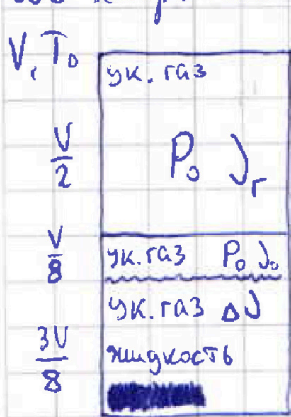 V, T₀
ук. газ
V/2
P₀ νг
V/8
ук. газ P₀ ν₀
ук. газ Δν
3V/8
жидкость